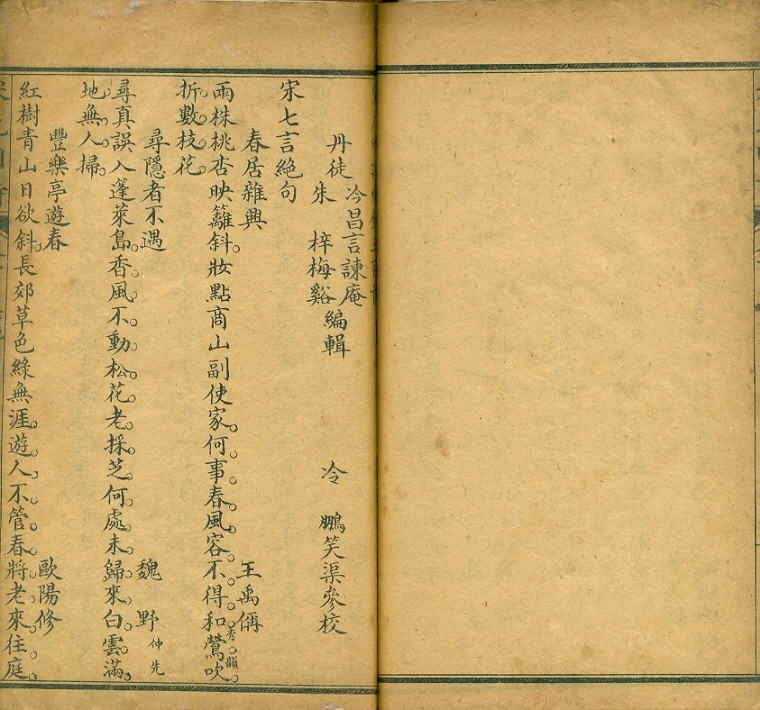 丹徒
冷昌言諫庵
朱 梓梅谿
編輯
冷 鵬笑渠參校
宋七言絕句
春居雜興 王禹偁
兩株桃杏映籬斜妝點商山副使家何事春風容不得和鶯吹
折數枝花
尋隱者不遇 魏 野仲先
尋真誤入蓬萊島香風不動松花老採芝何處未歸來白雲滿
地無人掃
豐樂亭遊春 歐陽修
紅樹青山日欲斜長郊草色綠無涯遊人不管春將老來往庭